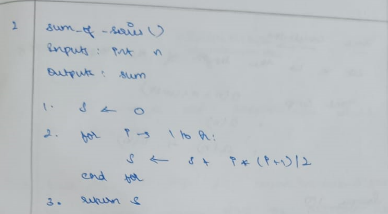 1 sum_of_series ()
Inputs : int n
Outputs : sum
1. S ← 0
2. for i → 1 to n:
S ← S + i * (i+1)/2
end for
3. return S